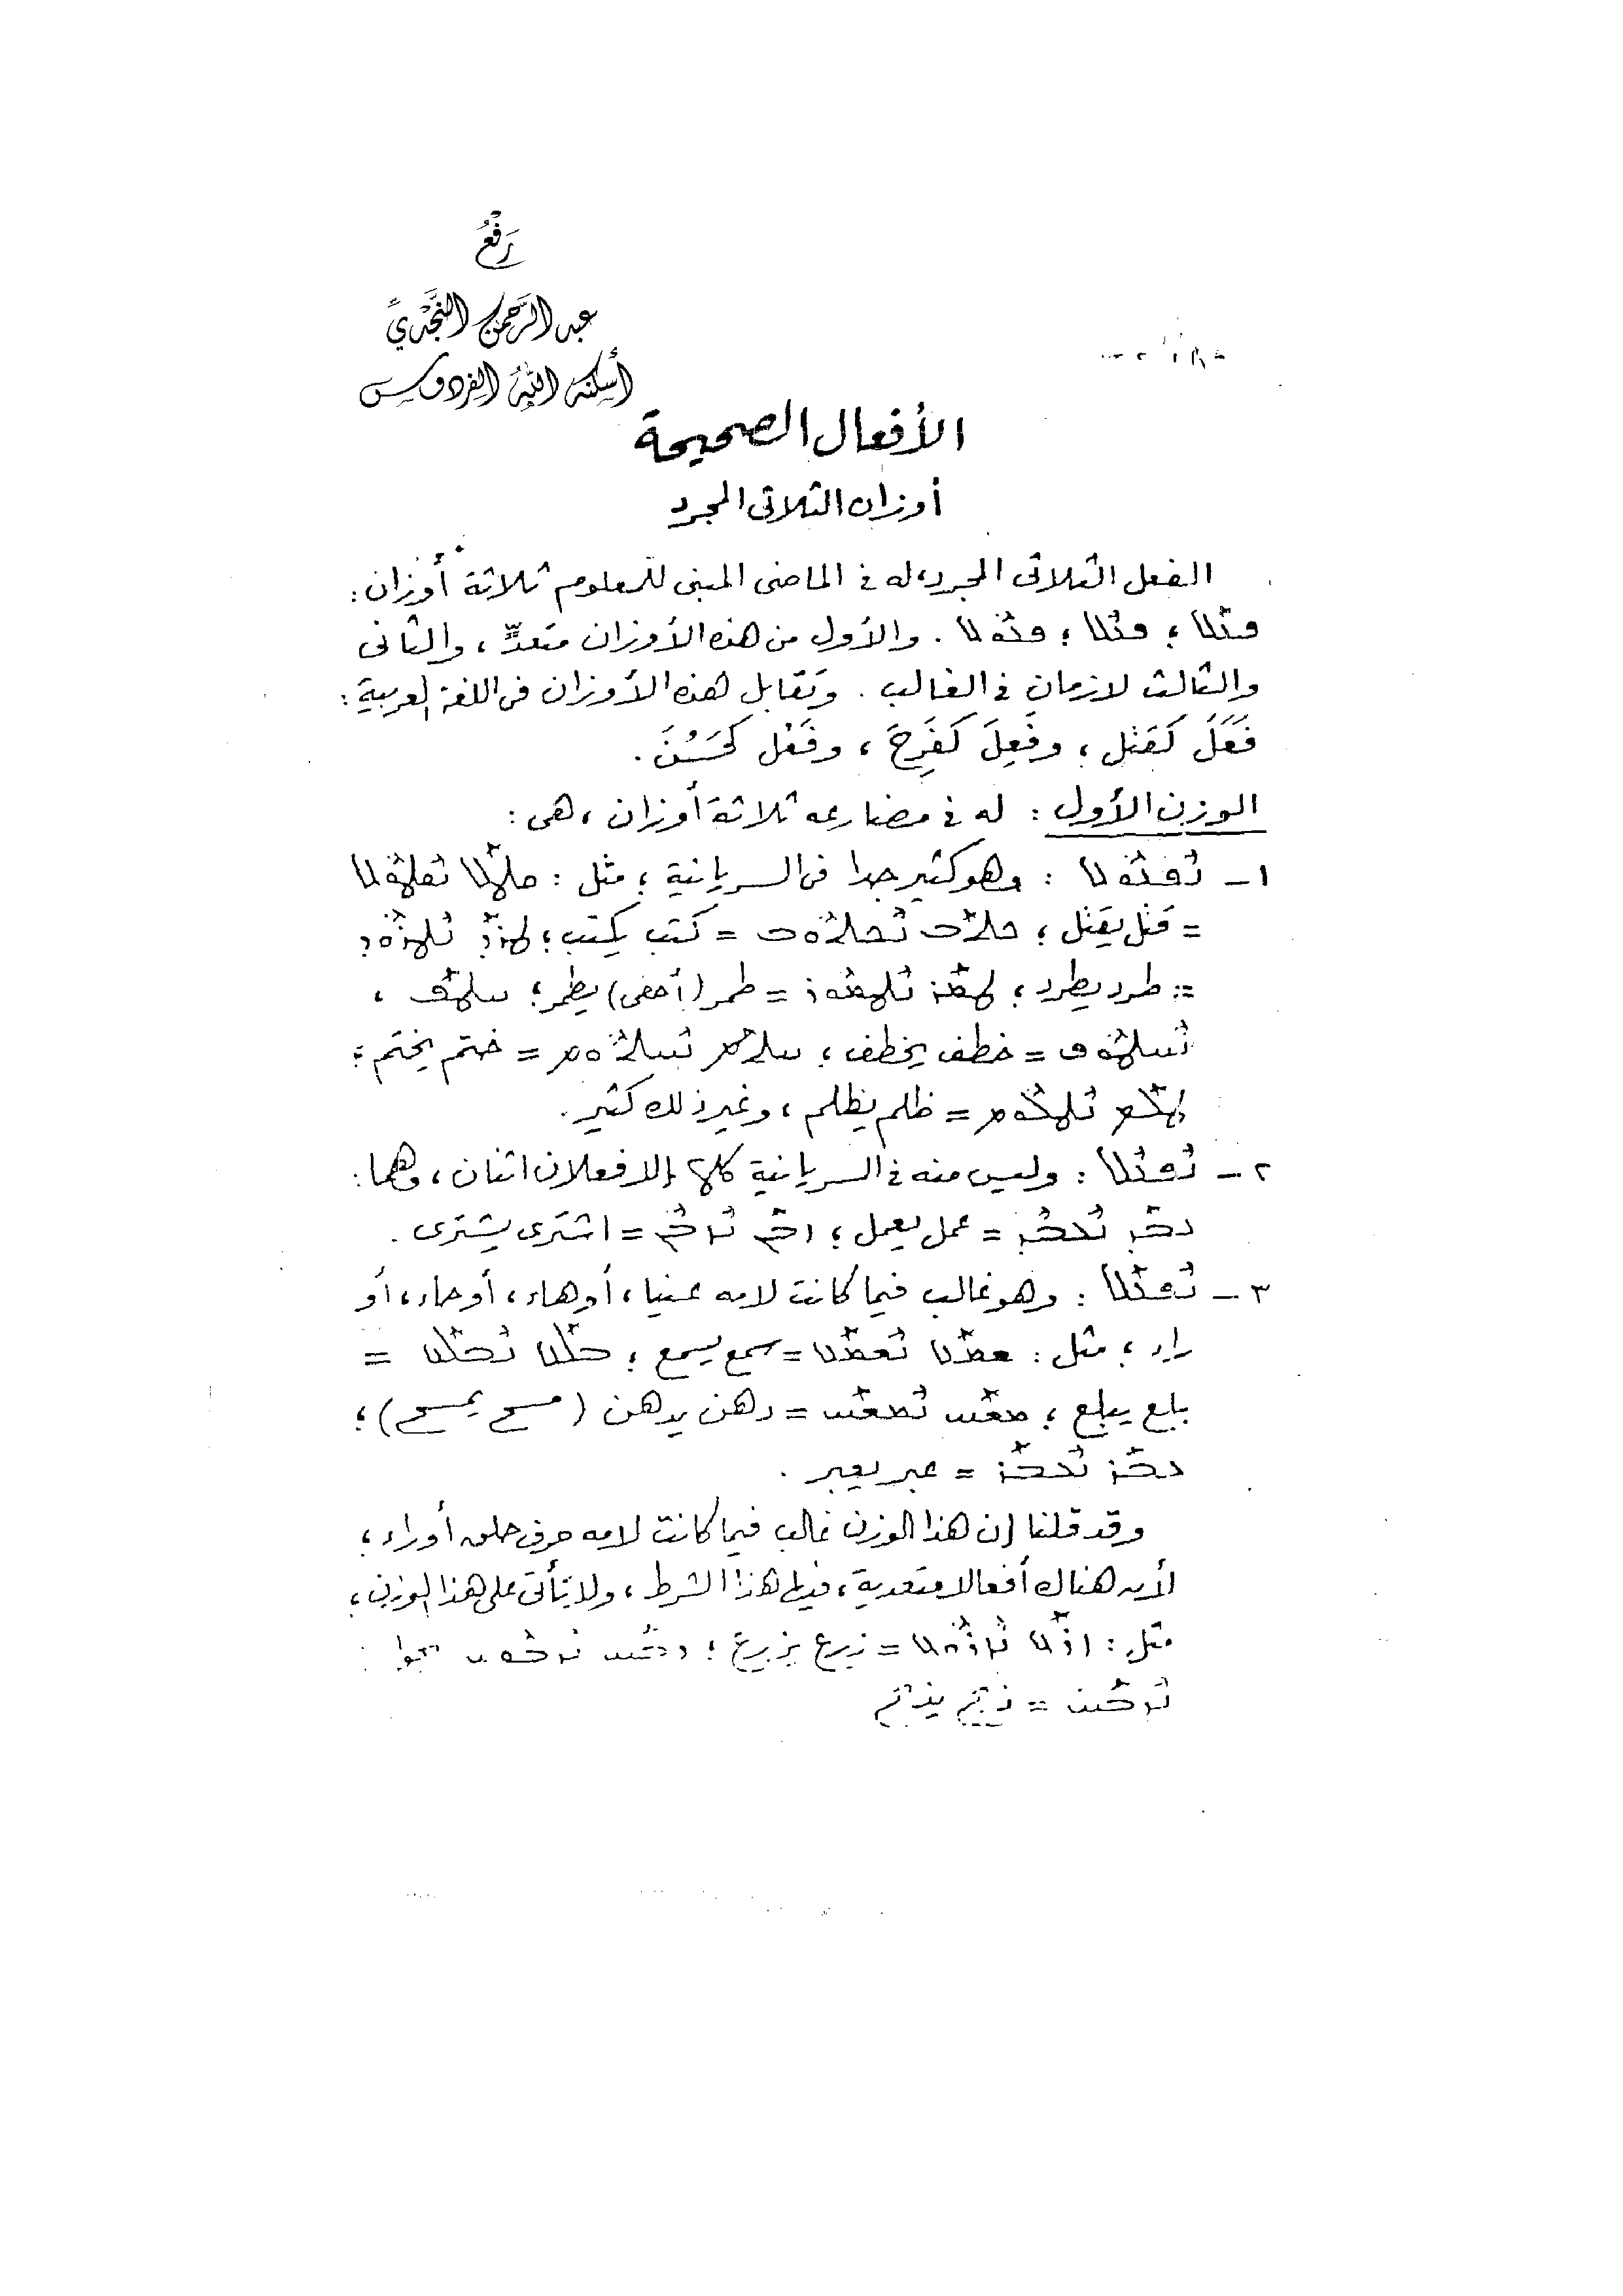 رَفْعُ
عبد الرَّحمن النَّجْديِّ
أسكنه اللهُ الفردوس
الأفعال الصحيحة
أوزان الثلاثى المجرد
الفعل الثلاثى المجرد، له فى الماضى المبنى للمعلوم ثلاثة أوزان :
. والأول من هذه الأوزان متعدٍّ ، والثانى
والثالث لازمان فى الغالب . وتقابل هذه الأوزان فى اللغة العربية :
فَعَلَ كَقَتَل ؛ وفَعِلَ كَفَرِحَ ، وفَعُل كحَسُنَ .
الوزن الأول : له فى مضارعه ثلاثة أوزان ، هى :
١ - ܢܶܦܥܽܘܠ : وهو كثير جدا فى السريانية ؛ مثل : ܩܛܰܠ ܢܶܩܛܽܘܠ
= قتل يقتل ؛ ܟܬܰܒ ܢܶܟܬܽܘܒ = كتب يكتب ؛ ܛܪܰܕ ܢܶܛܪܽܘܕ
= طرد يطرد ؛ ܛܡܰܪ ܢܶܛܡܽܘܪ = طمر (أخفى) يطمر ؛ ܚܛܰܦ ،
ܢܶܚܛܽܘܦ = خطف يخطف ؛ ܚܬܰܡ ܢܶܚܬܽܘܡ = ختم يختم ؛
ܛܠܰܡ ܢܶܛܠܽܘܡ = ظلم يظلم ، وغير ذلك كثير .
٢ - ܢܶܦܥܶܠ : وليس منه فى السريانية كلها إلا فعلان اثنان ، وهما :
ܥܒܰܕ ܢܶܥܒܶܕ = عمل يعمل ؛ ܙܒܰܢ ܢܶܙܒܶܢ = اشترى يشترى .
٣ - ܢܶܦܥܰܠ : وهو غالب فيما كانت لامه عينا ، أو هاء ، أو حاء ، أو
راء ؛ مثل : ܫܡܰܥ ܢܶܫܡܰܥ = سمع يسمع ؛ ܒܠܰܥ ܢܶܒܠܰܥ =
بلع يبلع ؛ ܡܫܰܚ ܢܶܡܫܰܚ = دهن يدهن (مسح يمسح) ؛
ܥܒܰܪ ܢܶܥܒܰܪ = عبر يعبر .
وقد قلنا إن هذا الوزن غالب فيما كانت لامه حرف حلق أو راء ،
لأنه هناك أفعالا متعدية ، فيها هذا الشرط ، ولا تأتى على هذا الوزن ،
مثل : ܙܪܰܥ ܢܶܙܪܽܘܥ = زرع يزرع ؛
ܢܶܕܒܰܚ = ذبح يذبح